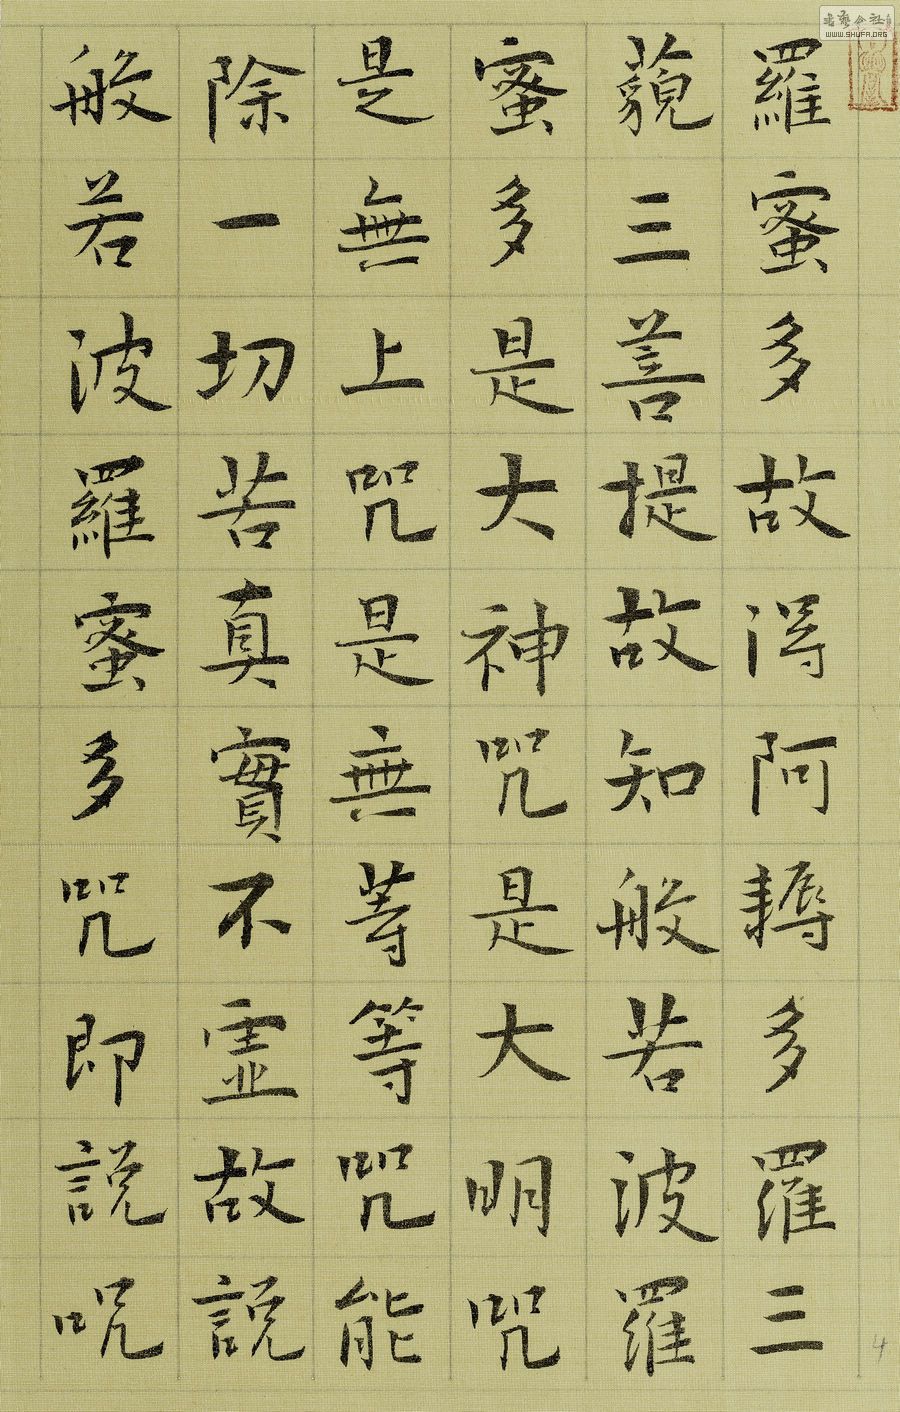 羅蜜多故得阿耨多羅三
藐三菩提故知般若波羅
蜜多是大神咒是大明咒
是無上咒是無等等咒能
除一切苦真實不虛故說
般若波羅蜜多咒即說咒
4
WWW.SHUFA.ORG